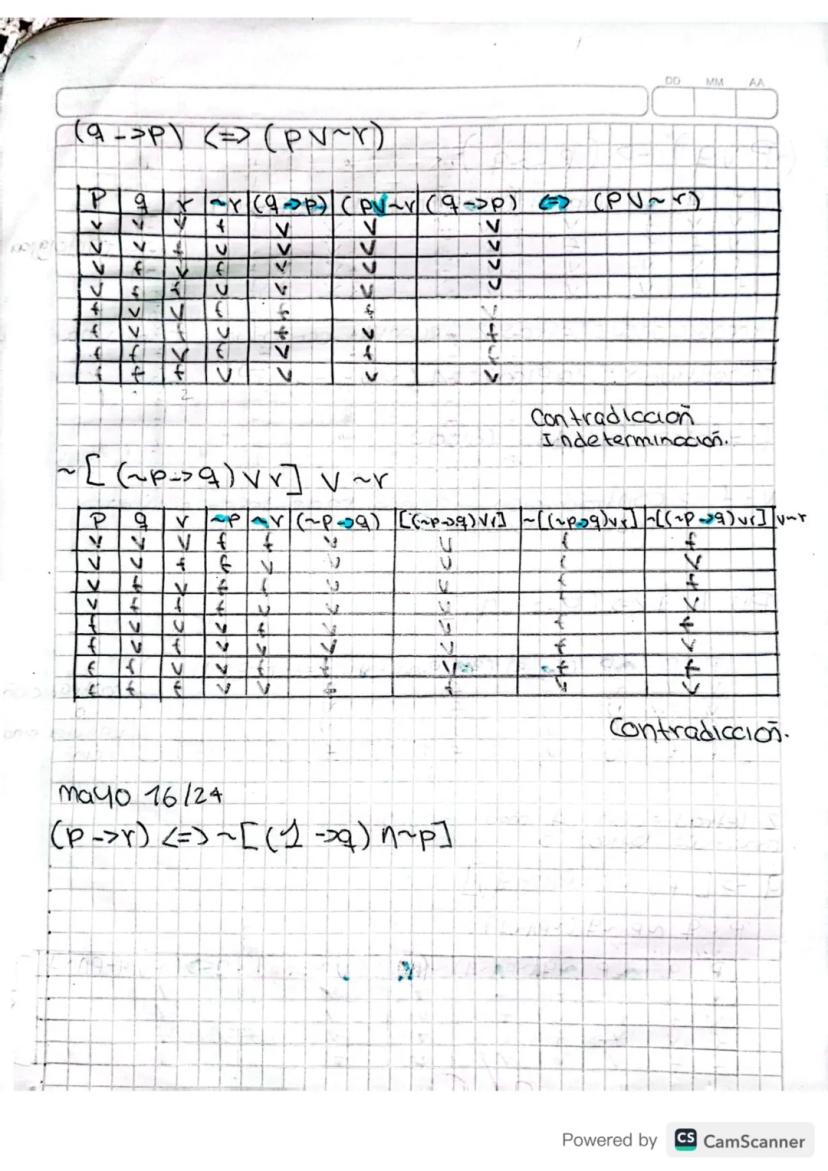 DD MM AA
(q->p) <=> (p v ~r)
P q r ~r (q->p) (pv~r (q->p) <=> (pv~r)
v v v f v v v
v v f v v v v
v f v f v v v
v f f v v v v
f v v f f f v
f v f v f v f
f f v f v f f
f f f v v v v
Contradiccion
Indeterminacion.
~[(~p->q) v r] v ~r
P q r ~p ~r (~p->q) [(~p->q)vr] ~[(~p->q)vr] ~[(~p->q)vr] v~r
v v v f f v v f f
v v f f v v v f v
v f v f f v v f f
v f f f v v v f v
f v v v f v v f f
f v f v v v v f v
f f v v f f v f f
f f f v v f f v v
Contradiccion.
Mayo 16/24
(p->r) <=> ~[(1->q) n ~p]
Powered by CS CamScanner